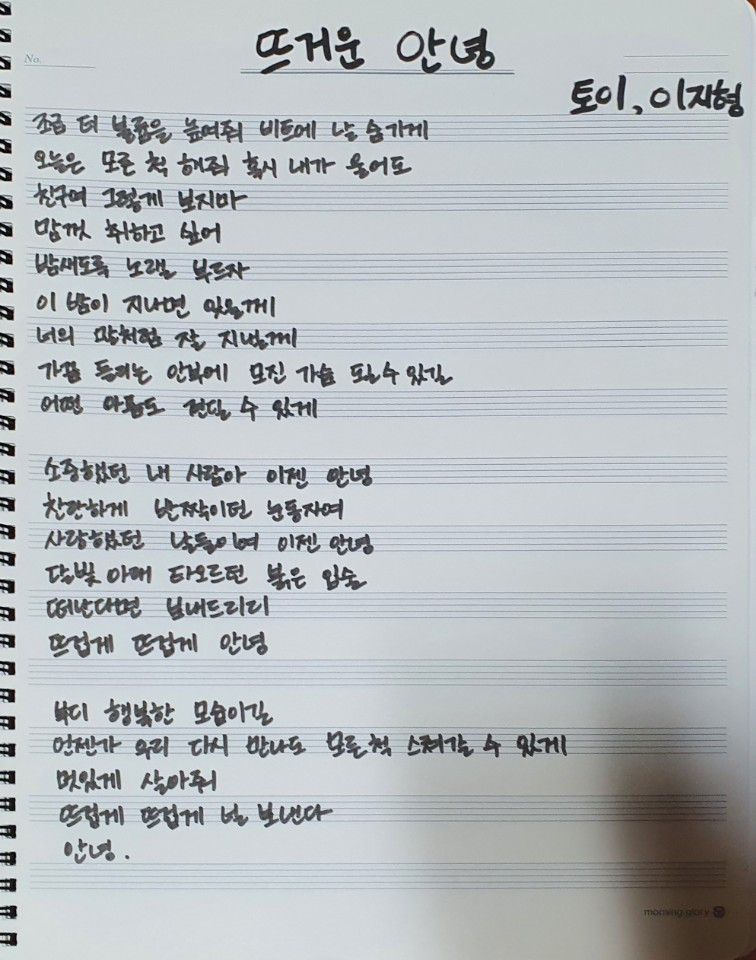 No.
뜨거운 안녕
토이, 이지형
조금 더 볼륨을 높여줘 비트에 날 숨기게
오늘은 모른 척 해줘 혹시 내가 울어도
친구여 그렇게 보지마
맘껏 취하고 싶어
밤새도록 노랠 부르자
이 밤이 지나면 잊을께
너의 말처럼 잘 지낼께
가끔 들리는 안부에 모진 가슴 될 수 있길
어떤 아픔도 견딜 수 있게
소중했던 내 사람아 이젠 안녕
찬란하게 반짝이던 눈동자여
사랑했던 날들이여 이젠 안녕
달빛 아래 타오르던 붉은 입술
떠난다면 보내드리리
뜨겁게 뜨겁게 안녕
부디 행복한 모습이길
언젠가 우리 다시 만나도 모른척 스쳐갈 수 있게
멋있게 살아줘
뜨겁게 뜨겁게 널 보낸다
안녕.
morning glory